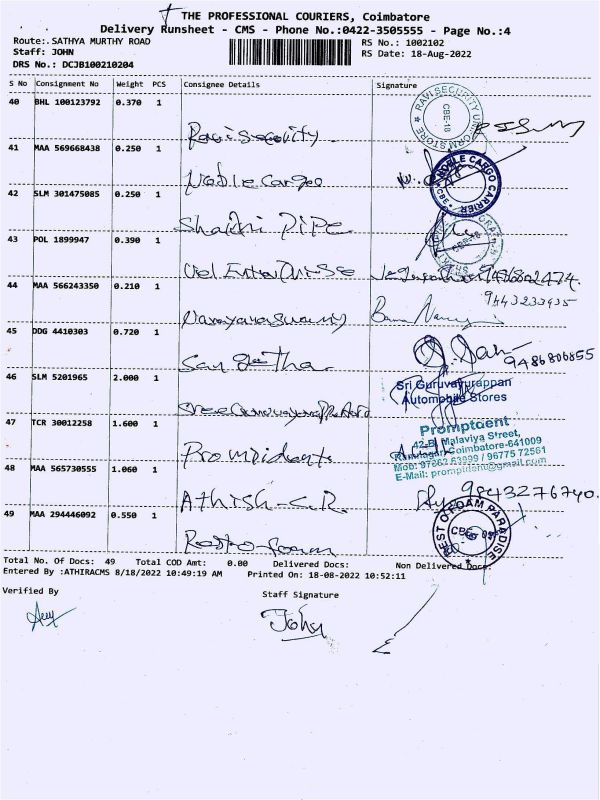 THE PROFESSIONAL COURIERS, Coimbatore
Delivery Runsheet - CMS - Phone No.:0422-3505555 - Page No.:4
Route:.SATHYA MURTHY ROAD RS No.: 1002102
Staff: JOHN RS Date: 18-Aug-2022
DRS No.: DCJB100210204
S No Consignment No Weight PCS Consignee Details Signature
40 BHL 100123792 0.370 1 Ravi security
RAVI SECURITY UNIFORM STORE CBE-18
41 MAA 569668438 0.250 1 Noble Cargo
NOBLE CARGO CARRIER CBE
42 SLM 301475085 0.250 1 Shakthi PIPE
CBE-18
43 POL 1899947 0.390 1 Uel Enterprise
44 MAA 566243350 0.210 1 Narayanaswamy
9443233935
45 DDG 4410303 0.720 1 Sangeetha
9486806855
46 SLM 5201965 2.000 1
Sri Guruvayurappan
Automobile Stores
47 TCR 30012258 1.600 1 Prompidents
Promptdent
42-B, Malaviya Street,
Ramnagar, Coimbatore-641009
Mob: 97862 63999 / 96775 72561
E-Mail: promptdent@gmail.com
48 MAA 565730555 1.060 1 Athish-C.R.
9843276740.
49 MAA 294446092 0.550 1 Rest of foam
REST OF FOAM PARADISE CBE-09
Total No. Of Docs: 49 Total COD Amt: 0.00 Delivered Docs: Non Delivered Docs:
Entered By :ATHIRACMS 8/18/2022 10:49:19 AM Printed On: 18-08-2022 10:52:11
Verified By Staff Signature
John